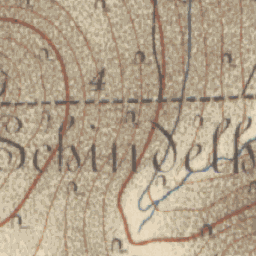 4
Schindelh